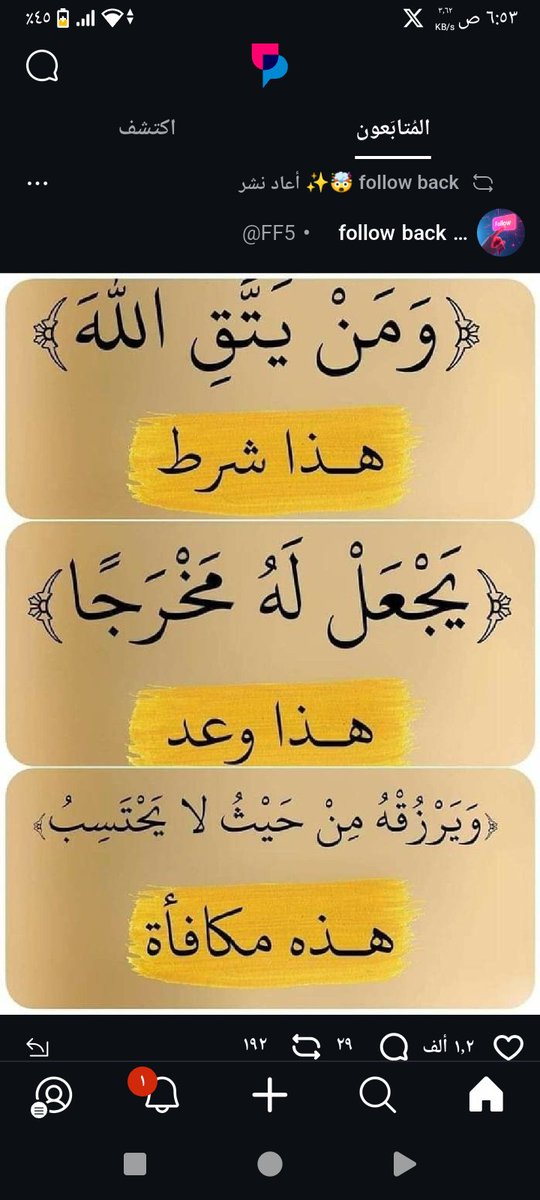 ٦:٥٣ ص ٣,٦٢ KB/s ٤٥٪
المُتابَعون
اكتشف
follow back 🤯✨ أعاد نشر
follow back ... • @FF5
﴿وَمَنْ يَتَّقِ اللَّهَ﴾
هـذا شرط
﴿يَجْعَلْ لَهُ مَخْرَجًا﴾
هـذا وعد
﴿وَيَرْزُقْهُ مِنْ حَيْثُ لا يَحْتَسِبُ﴾
هـذه مكافأة
١,٢ ألف ٢٩ ١٩٢
١